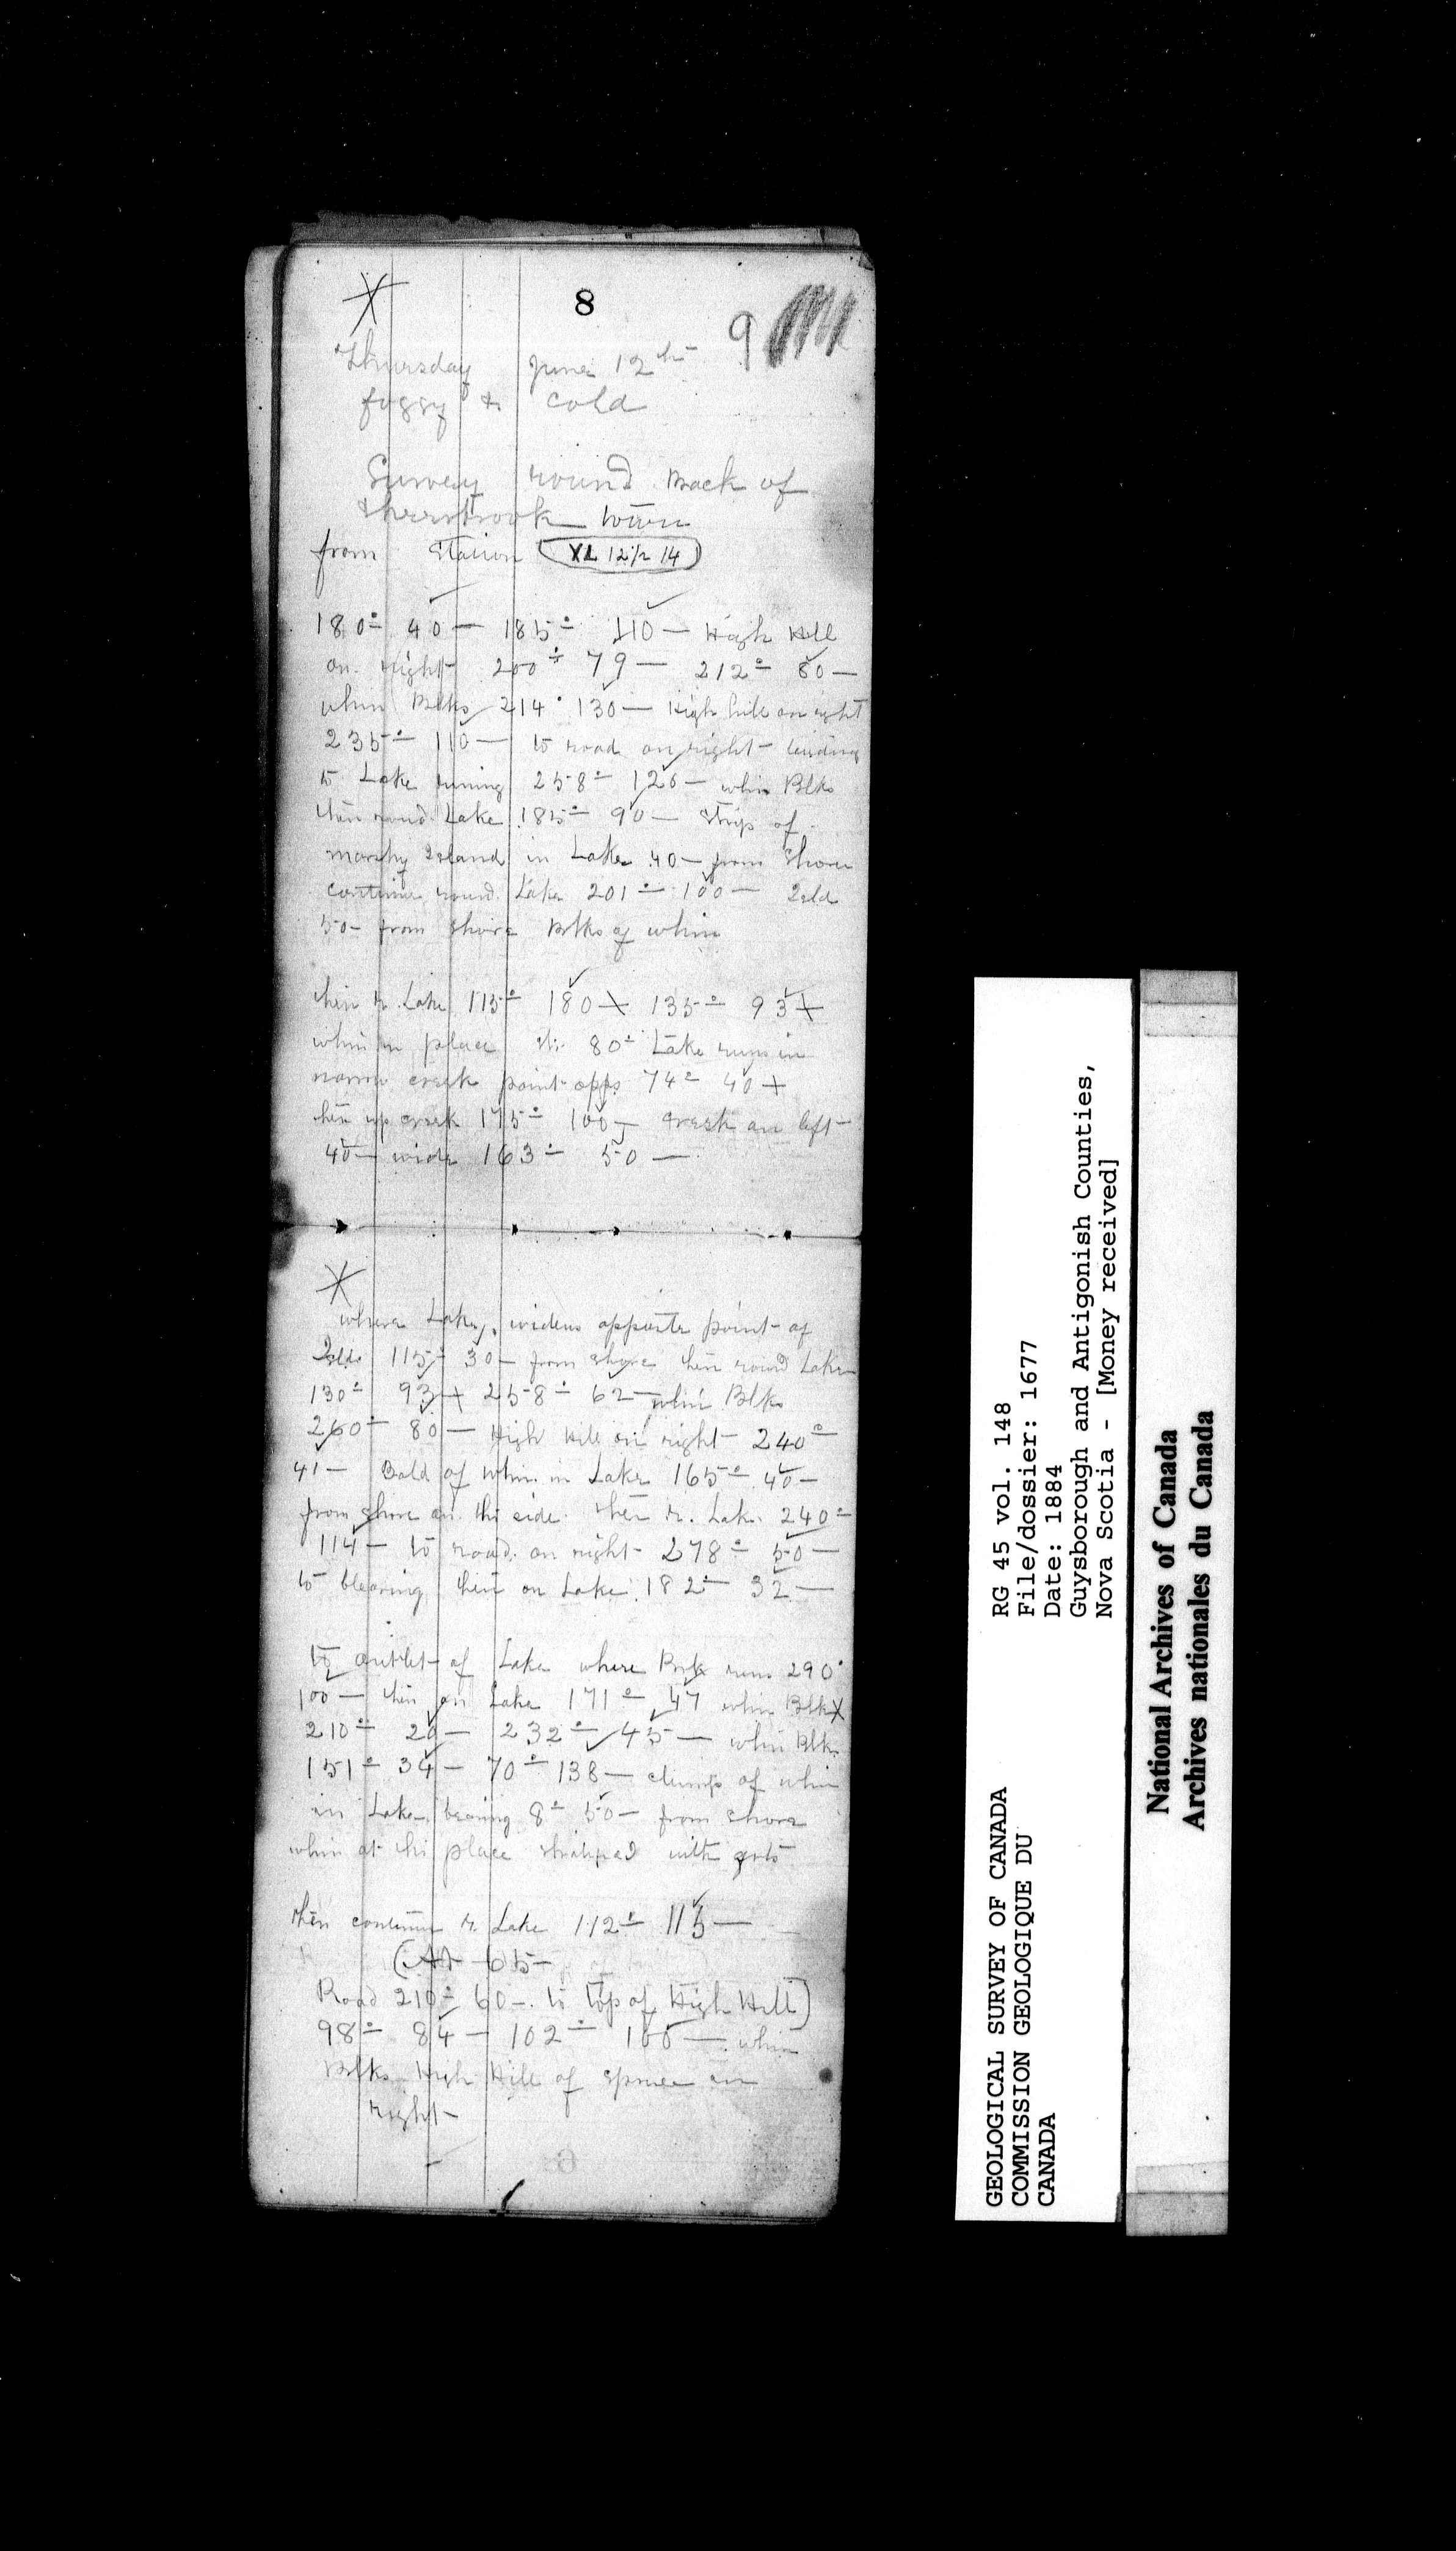 8
9
Thursday June 12th
foggy & cold
Survey round Back of
Sherbrook town
from Station XL 12/r 14
180° 40 — 185° 110 — High Hill
on right 200° 79 — 212° 80 —
whin Blks 214° 130 — High hill on right
235° 110 — to road on right leading
to Lake runing 258° 126 — whin Blks
then round Lake 185° 90 — Strip of
marshy Island in Lake 40 — from Shore
continue round Lake 201° 100 — Isld
50 — from Shore Blks of whin
then r. Lake 115° 180 + 135° 93 +
whin in place str 80° Lake runs in
narrow creek point opps 74° 40 +
then up creek 175° 100 — creek on left
40 — wide 163° 50 —
where Lake widens opposite point of
Isld 115° 30 — from shore then round Lake
130° 93 + 258° 62 — whin Blks
260° 80 — High Hill on right 240°
41 — Bald of whin in Lake 165° 40 —
from shore on this side then r. Lake 240°
114 — to road on right 278° 50 —
to clearing then on Lake 182° 32 —
to outlet of Lake where Brk runs 290°
100 — then on Lake 171° 47 whin Blk X
210° 20 — 232° 45 — whin Blk
151° 34 — 70° 138 — clumps of whin
in Lake bearing 8° 50 — from shore
whin at this place with
then continue r. Lake 112° 115 —
(At 65 —
Road 210° 60 — to top of High Hill)
98° 84 — 102° 100 — whin
Blks High Hill of spruce on
right
GEOLOGICAL SURVEY OF CANADA
COMMISSION GEOLOGIQUE DU
CANADA
RG 45 vol. 148
File/dossier: 1677
Date: 1884
Guysborough and Antigonish Counties,
Nova Scotia - [Money received]
National Archives of Canada
Archives nationales du Canada